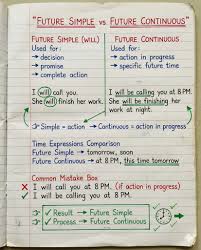 "FUTURE SIMPLE vs. FUTURE CONTINUOUS"
FUTURE SIMPLE (WILL)
Used for:
→ decision
→ promise
→ complete action
I will call you at 8 PM.
She will finish her work.
FUTURE CONTINUOUS
Used for:
→ action in progress
→ specific future time
I will be calling you at 8 PM.
She will be finishing her
work at night.
Simple = action → Continuous = action in progress
Time Expressions Comparison
Future Simple → tomorrow, soon
Future Continuous → at 8 PM, this time tomorrow
Common Mistake Box
✗ I will call you at 8 PM. (if action in progress)
✓ I will be calling you at 8 PM.
☞ ✓ Result → Future Simple
☞ ✓ Process → Future Continuous